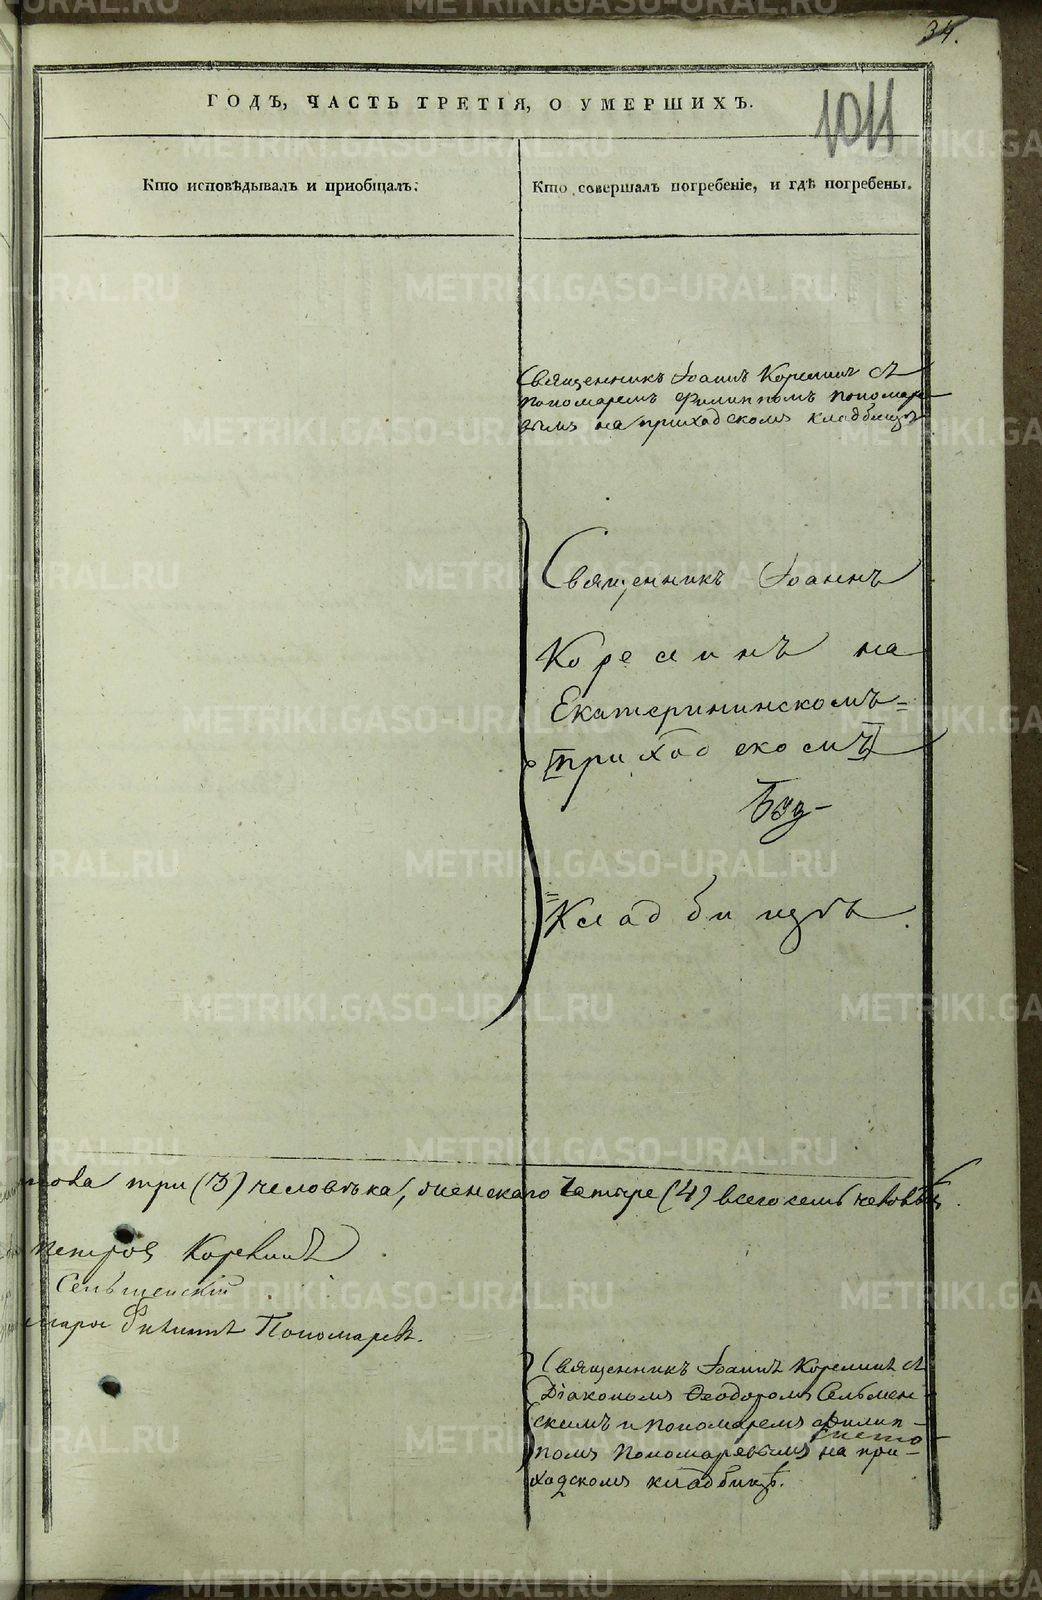 34.
1011
ГОДЪ, ЧАСТЬ ТРЕТІЯ, О УМЕРШИХЪ.
Кто исповѣдывалъ и пріобщалъ.
Кто совершалъ погребеніе, и гдѣ погребены.
Священникъ Іоаннъ Корелинъ съ
пономаремъ Филиппомъ Пономаре-
вымъ на приходскомъ кладбищѣ
Священникъ Іоаннъ
Корелинъ на
Екатерининскомъ=
[приходскомъ]
=Кладбищѣ.
три (3) человѣка, женскаго четыре (4) всего семь человѣкъ.
Петровъ Корелинъ
Сельменскій
Филиппъ Пономаревъ.
Священникъ Іоаннъ Корелинъ съ
Діакономъ Ѳеодоромъ Сельмен-
скимъ и пономаремъ Филип-
помъ Пономаревымъ на при-
ходскомъ кладбищѣ.
METRIKI.GASO-URAL.RU